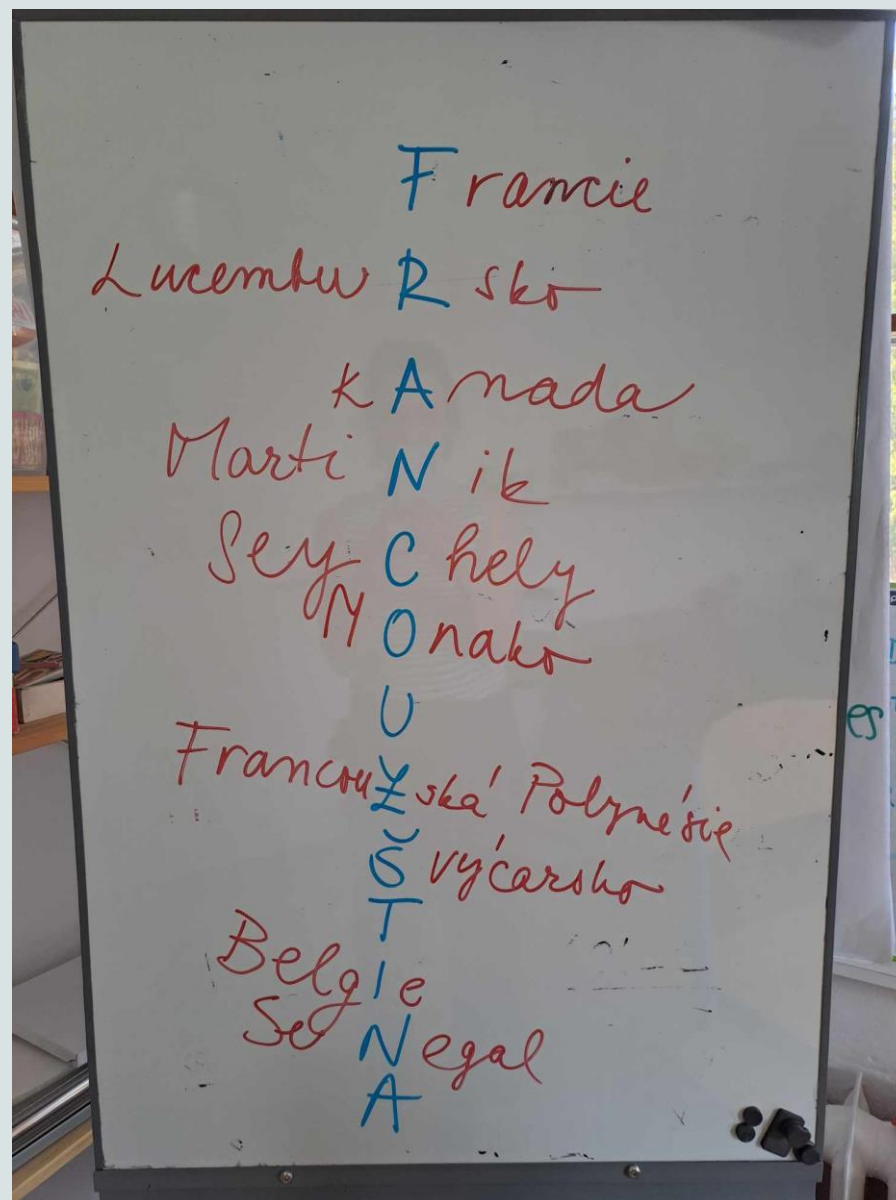 Francie
LucembuRsko
kAnada
MartiNik
SeyChely
MOnako
U
FrancouŽská Polynésie
Švýcarsko
T
BelgIe
SeNegal
A
es